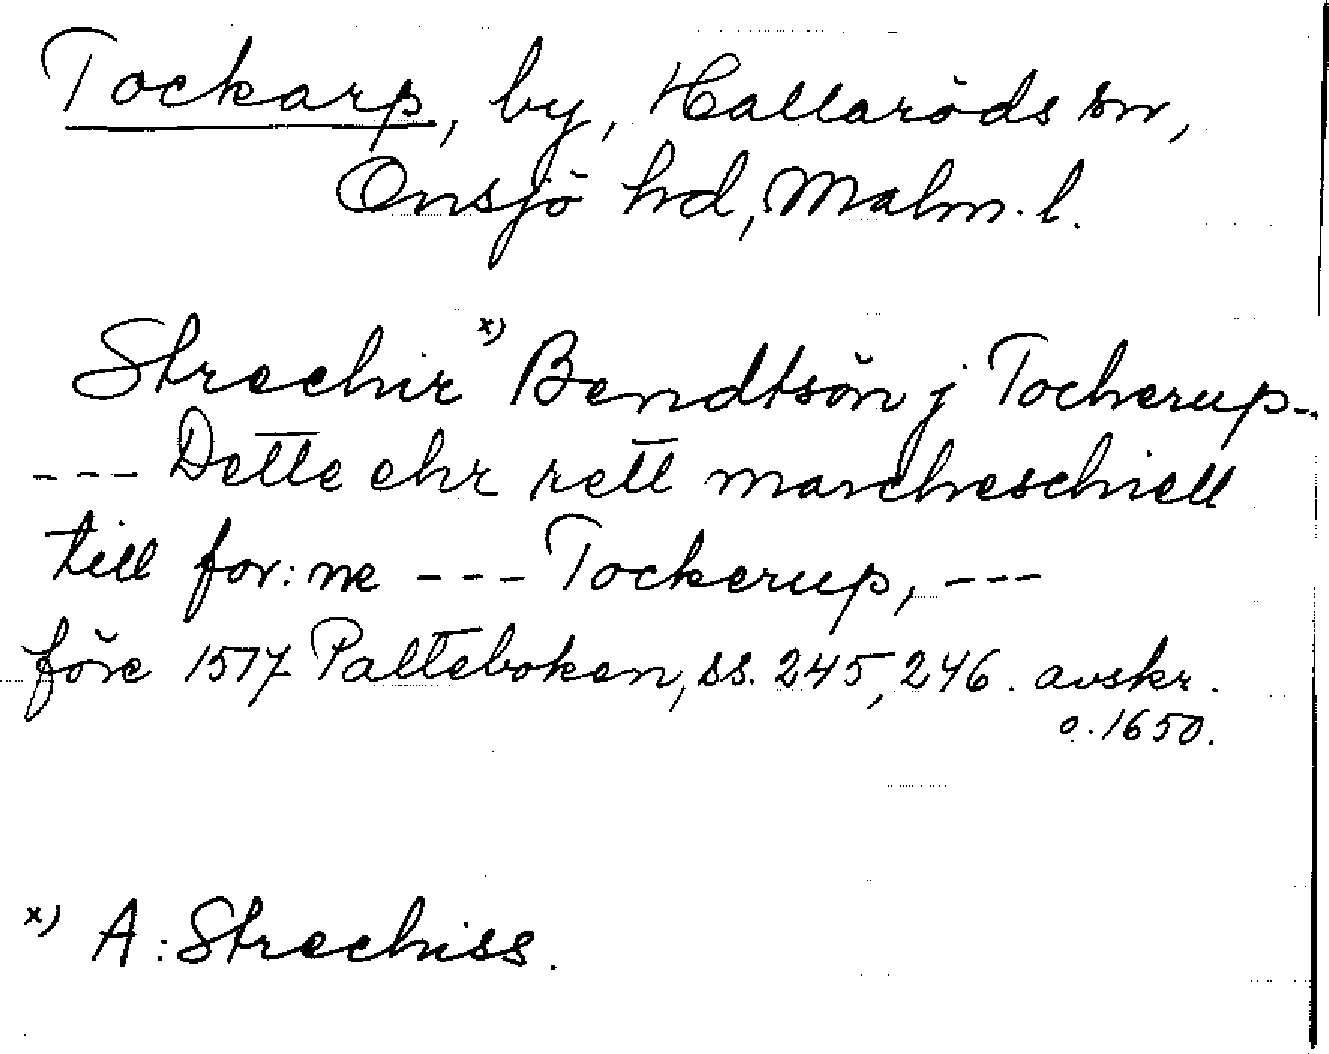 Tockarp, by, Hallaröds sn,
Onsjö hd, Malm. l.
Strechir x) Bendtsön j Tocherup-.
--- Dette ehr rett marcheschiell
till for: ne --- Tockerup, ---
före 1517 Palteboken, ss. 245, 246. avskr.
o. 1650.
x) A: Strechiss.